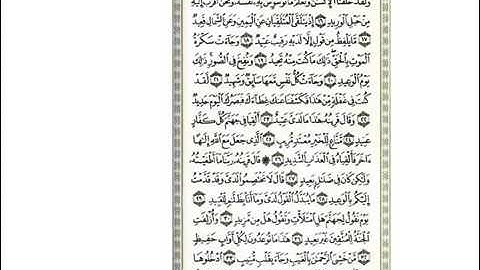 وَلَقَدْ خَلَقْنَا ٱلْإِنسَٰنَ وَنَعْلَمُ مَا تُوَسْوِسُ بِهِۦ نَفْسُهُۥ وَنَحْنُ أَقْرَبُ إِلَيْهِ
مِنْ حَبْلِ ٱلْوَرِيدِ ١٦ إِذْ يَتَلَقَّى ٱلْمُتَلَقِّيَانِ عَنِ ٱلْيَمِينِ وَعَنِ ٱلشِّمَالِ قَعِيدٌ
١٧ مَّا يَلْفِظُ مِن قَوْلٍ إِلَّا لَدَيْهِ رَقِيبٌ عَتِيدٌ ١٨ وَجَآءَتْ سَكْرَةُ
ٱلْمَوْتِ بِٱلْحَقِّ ذَٰلِكَ مَا كُنتَ مِنْهُ تَحِيدُ ١٩ وَنُفِخَ فِى ٱلصُّورِ ذَٰلِكَ
يَوْمُ ٱلْوَعِيدِ ٢٠ وَجَآءَتْ كُلُّ نَفْسٍ مَّعَهَا سَآئِقٌ وَشَهِيدٌ ٢١ لَّقَدْ
كُنتَ فِى غَفْلَةٍ مِّنْ هَٰذَا فَكَشَفْنَا عَنكَ غِطَآءَكَ فَبَصَرُكَ ٱلْيَوْمَ حَدِيدٌ
٢٢ وَقَالَ قَرِينُهُۥ هَٰذَا مَا لَدَىَّ عَتِيدٌ ٢٣ أَلْقِيَا فِى جَهَنَّمَ كُلَّ كَفَّارٍ
عَنِيدٍ ٢٤ مَّنَّاعٍ لِّلْخَيْرِ مُعْتَدٍ مُّرِيبٍ ٢٥ ٱلَّذِى جَعَلَ مَعَ ٱللَّهِ إِلَٰهًا
ءَاخَرَ فَأَلْقِيَاهُ فِى ٱلْعَذَابِ ٱلشَّدِيدِ ٢٦ ۞ قَالَ قَرِينُهُۥ رَبَّنَا مَآ أَطْغَيْتُهُۥ
وَلَٰكِن كَانَ فِى ضَلَٰلٍۭ بَعِيدٍ ٢٧ قَالَ لَا تَخْتَصِمُوا۟ لَدَىَّ وَقَدْ قَدَّمْتُ
إِلَيْكُم بِٱلْوَعِيدِ ٢٨ مَا يُبَدَّلُ ٱلْقَوْلُ لَدَىَّ وَمَآ أَنَا۠ بِظَلَّٰمٍ لِّلْعَبِيدِ ٢٩
يَوْمَ نَقُولُ لِجَهَنَّمَ هَلِ ٱمْتَلَأْتِ وَتَقُولُ هَلْ مِن مَّزِيدٍ ٣٠ وَأُزْلِفَتِ
ٱلْجَنَّةُ لِلْمُتَّقِينَ غَيْرَ بَعِيدٍ ٣١ هَٰذَا مَا تُوعَدُونَ لِكُلِّ أَوَّابٍ حَفِيظٍ
٣٢ مَّنْ خَشِىَ ٱلرَّحْمَٰنَ بِٱلْغَيْبِ وَجَآءَ بِقَلْبٍ مُّنِيبٍ ٣٣ ٱدْخُلُوهَا